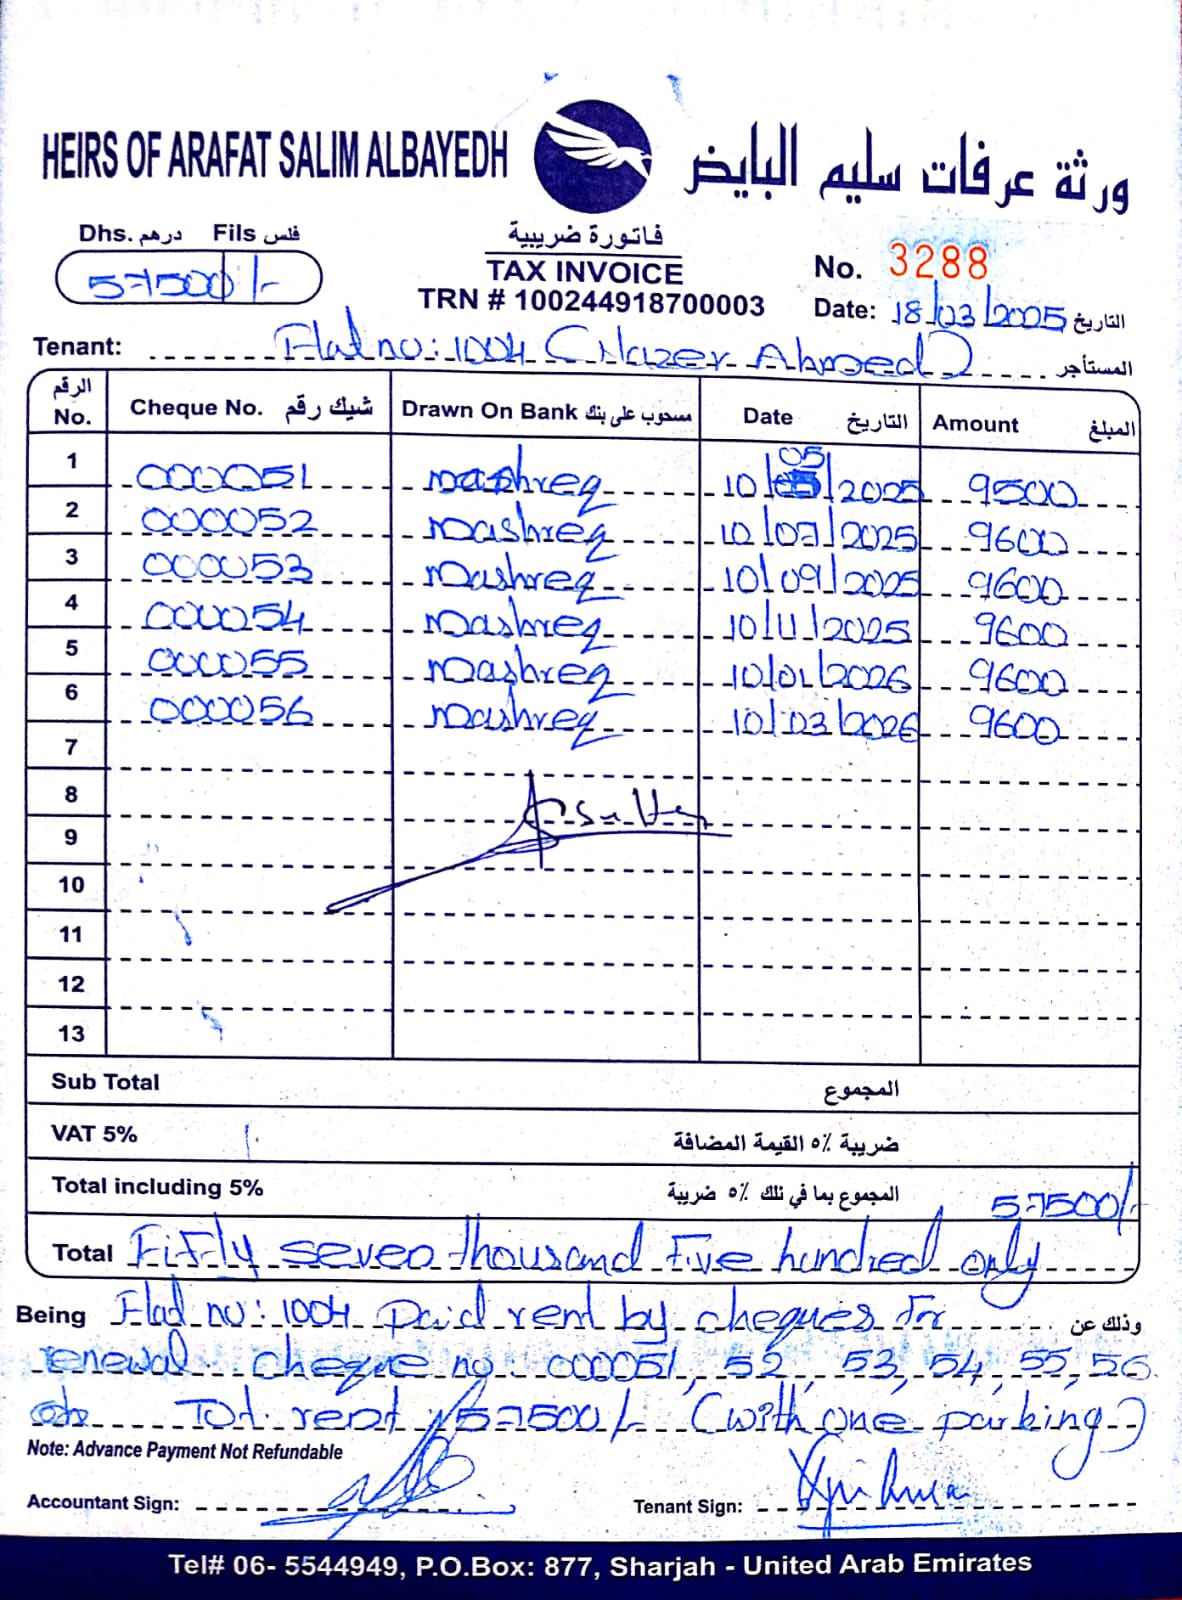 HEIRS OF ARAFAT SALIM ALBAYEDH ورثة عرفات سليم البايض
Dhs. درهم Fils فلس
57500/-
فاتورة ضريبية
TAX INVOICE
TRN # 100244918700003
No. 3288
Date: 18/03/2025 التاريخ
Tenant: Flat no: 1004 (Nazer Ahmed) المستأجر
الرقم No. Cheque No. شيك رقم Drawn On Bank مسحوب على بنك Date التاريخ Amount المبلغ
1 000051 mashreq 10/05/2025 9500
2 000052 mashreq 10/07/2025 9600
3 000053 mashreq 10/09/2025 9600
4 000054 mashreq 10/11/2025 9600
5 000055 mashreq 10/01/2026 9600
6 000056 mashreq 10/03/2026 9600
7
8
9
10
11
12
13
Sub Total المجموع
VAT 5% ضريبة ٥٪ القيمة المضافة
Total including 5% المجموع بما في ذلك ٥٪ ضريبة 57500/-
Total Fifty seven thousand Five hundred only
Being Flat no: 1004 Paid rent by cheques for وذلك عن
renewal cheque no: 000051, 52, 53, 54, 55, 56
Tot. rent 57500/- (with one parking)
Note: Advance Payment Not Refundable
Accountant Sign: Tenant Sign:
Tel# 06- 5544949, P.O.Box: 877, Sharjah - United Arab Emirates